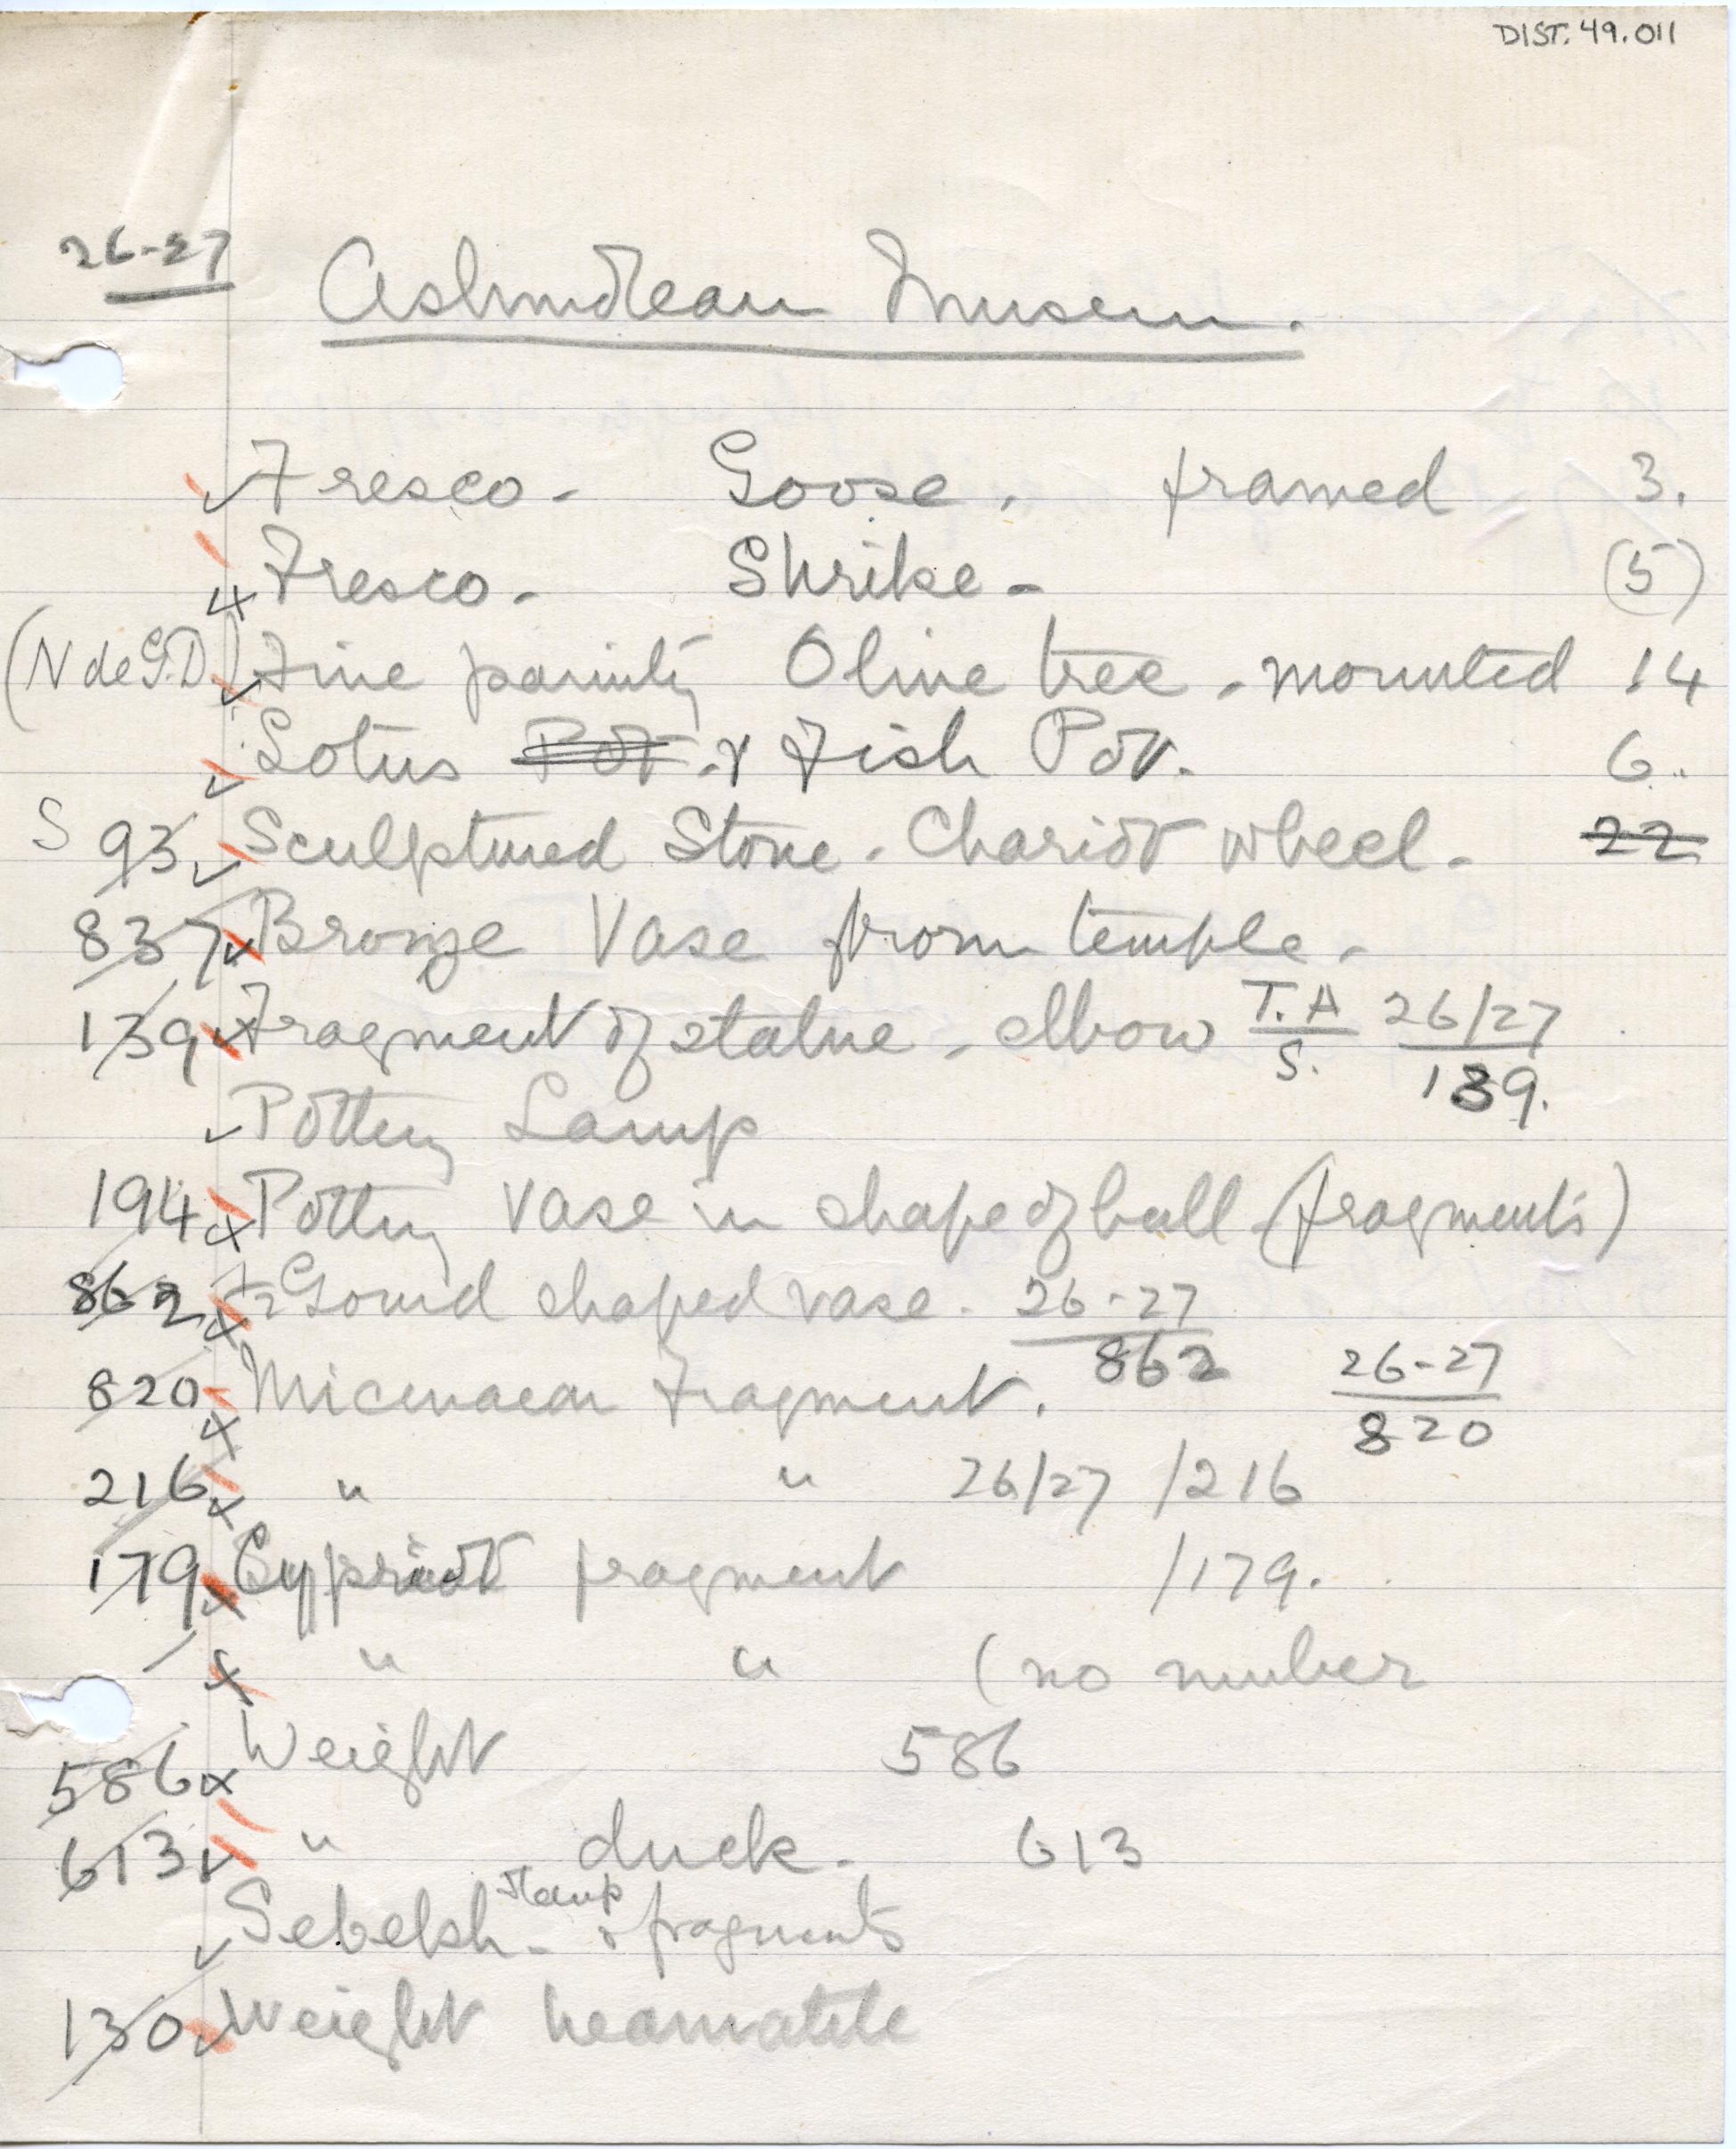 DIST. 49.011
26-27
Ashmolean Museum.
Fresco - Goose. framed 3.
Fresco - Shrike - (5)
(N de G.D.) Fine painting Olive tree - mounted 14
Lotus Pot. & Fish Pot. 6.
S 93 Sculptured Stone. Chariot wheel - 22
837 Bronze Vase from temple -
139 Fragment of statue - elbow T.A 26/27
S. 139.
Pottery Lamp
194 Pottery Vase in shape of bull (fragments)
862 Gourd shaped vase. 26-27
862 26-27
820 Micenaean Fragment. 820
216 " " 26/27 /216
179 Cypriot fragment /179.
" " (no number
586 Weight 586
613 " duck. 613
Sebekh - & fragments
130 Weight heamatite